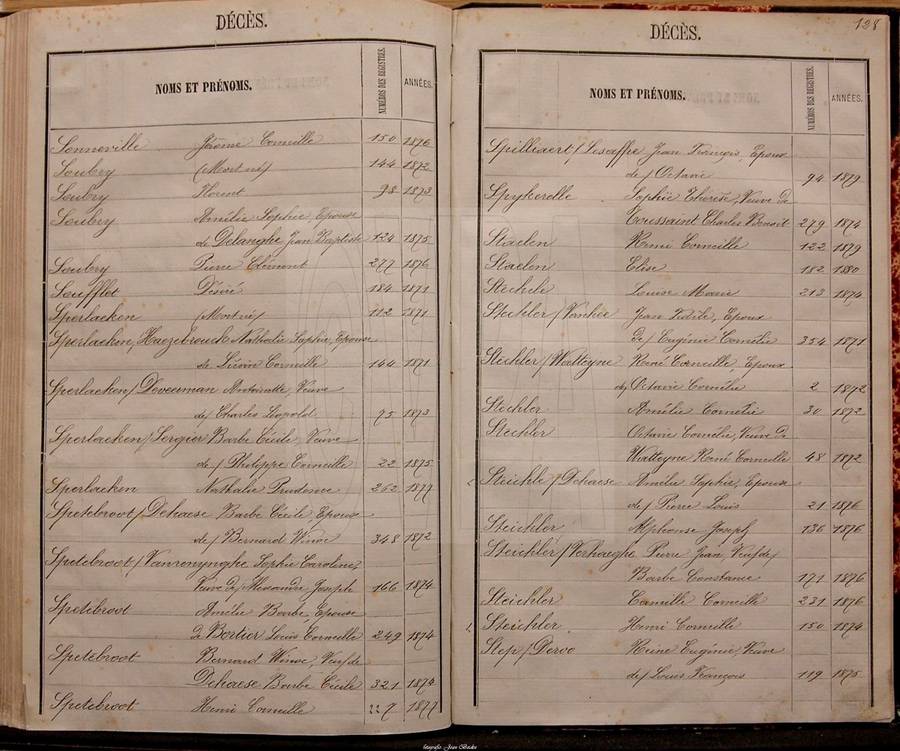 DÉCÈS.
NOMS ET PRÉNOMS. NUMÉROS DES REGISTRES. ANNÉES.
Sonneville Jérome Corneille 150 1876
Soubry (Mort né) 144 1872
Soubry Florent 98 1873
Soubry Amélie Sophie, Epouse
de Delanghe Jean Baptiste 124 1875
Soubry Pierre Clément 277 1876
Soufflet Désiré 184 1871
Sperlaeken (Mort né) 112 1871
Sperlaeken, Haezebrouck Nathalie Sophie, Epouse
de Corneille 144 1871
Sperlaeken / Deveuman Antoinette, Veuve
de / Charles Léopold 95 1873
Sperlaeken / Sergier Barbe Cécile, Veuve
de / Philippe Corneille 22 1875
Sperlaeken Nathalie Prudence 262 1877
Spetebroot / Dehaese Barbe Cécile Epouse
de / Bernard Winoc 348 1872
Spetebroot / Vanrenynghe Sophie Caroline,
Veuve de / Alexandre Joseph 166 1874
Spetebroot Amélie Barbe, Epouse
de Bortier Louis Corneille 249 1874
Spetebroot Bernard Winoc, Veuf de
Dehaese Barbe Cécile 321 1874
Spetebroot Henri Corneille 227 1877
DÉCÈS. 128
NOMS ET PRÉNOMS. NUMÉROS DES REGISTRES. ANNÉES.
Spilliaert / Lesaffre Jean François, Epoux
de / Octavie 94 1879
Spykerelle Sophie Thérèse, Veuve de
Toussaint Charles Benoit 279 1874
Staelen Remi Corneille 122 1879
Staelen Elise 182 1880
Stechele Louise Marie 213 1874
Stechler / Vanhée Jean Fidèle, Epoux
de / Eugénie Cornélie 354 1871
Stechler / Watteyne René Corneille, Epoux
de / Octavie Cornélie 2 1872
Stechler Amélie Cornélie 30 1872
Stechler Octavie Cornélie, Veuve de
Watteyne René Corneille 48 1872
Steichle / Dehaese Amélie Sophie, Epouse
de / Pierre Louis 21 1876
Steichler Alphonse Joseph 136 1876
Steichler / Verhaeghe Pierre Jean, Veuf de /
Barbe Constance 171 1876
Steichler Camille Corneille 231 1876
Steichler Henri Corneille 150 1874
Step / Deroo Reine Eugénie, Veuve
de / Louis François 119 1875
fotografie Jean Baekx